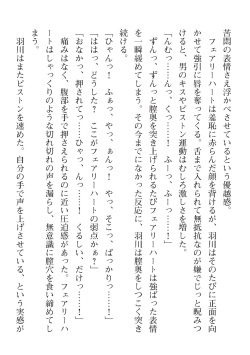 苦悶の表情さえ浮かべさせているという優越感。
　フェアリーハートは羞恥に赤らんだ顔を背けるが、羽川はそのたびに正面を向
かせて強引に唇を奪ってくる。舌まで入れられて無抵抗なのが嫌でじっと睨みつ
けると、男のキスやピストン運動はむしろ激しさを増した。
「んむっ……んんっ……！　ふーっ、ふーっ……！」
　ずんっ、ずんっと膣奥を突き上げられるたびフェアリーハートは強ばった表情
を一瞬緩めてしまう。その今までになかった反応に、羽川は膣奥をしつこく突き
続ける。
「ひゃんっ！　ふぁっ、やっ、ぁんっ！　やっ、そこっ、ばっかりっ……！」
「ははっ、どうした？　ここがフェアリーハートの弱点かぁ？」
「おなかっ、押されてっ……ひゃっ、んっ……！　くるしい、だけっ……！」
　痛みはなく、腹部を手で押さえられるのに近い圧迫感があった。フェアリーハ
ートはしゃっくりのような切れ切れの声を漏らし、無意識に膣穴を食い締めてし
まう。
　羽川はまたピストンを速めた。自分の手で声を上げさせている、という実感が